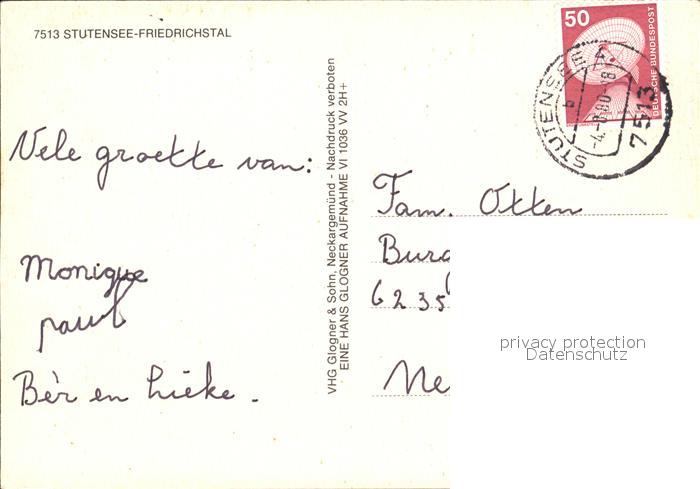 7513 STUTENSEE-FRIEDRICHSTAL
50
DEUTSCHE BUNDESPOST
STUTENSEE
7513
b
Vele groette van:
Monique
paul
Bèr en Lieke.
VHG Glogner & Sohn, Neckargemünd - Nachdruck verboten
EINE HANS GLOGNER AUFNAHME VI 1036 VV 2H+
Fam. Otten
Burg
6235
Ne
privacy protection
Datenschutz